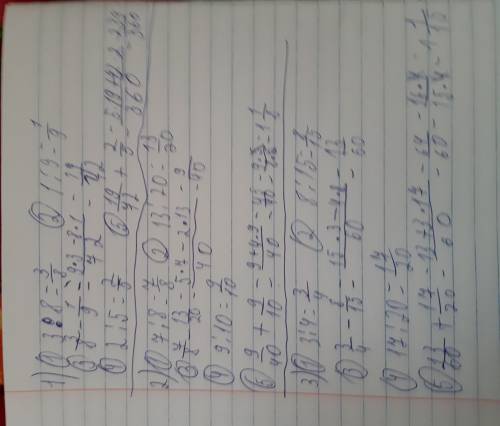 1) ① 3:8 = 3/8 ② 1:9 = 1/9
③ 3/8 - 1/9 = 9·3-8·1/72 = 19/72
④ 2:5 = 2/5 ⑤ 19/72 + 2/5 =
2) ① 7:8 = 7/8 ② 13:20 = 13/20
③ 7/8 - 13/20 = 5·7-2·13/40 = 9/40
④ 9:10 = 9/10
⑤ 9/40 + 9/10 = 9+4·9/40 = 45/40 = = 1 1/8
3) ① 3:4 = 3/4 ② 8:15 = 8/15
③ 3/4 - 8/15 = 15·3-4·8/60 = 13/60
④ 17:20 = 17/20
⑤ 13/60 + 17/20 = 13+3·17/60 = 64/60 = 16·4/15·4 = 1 1/15